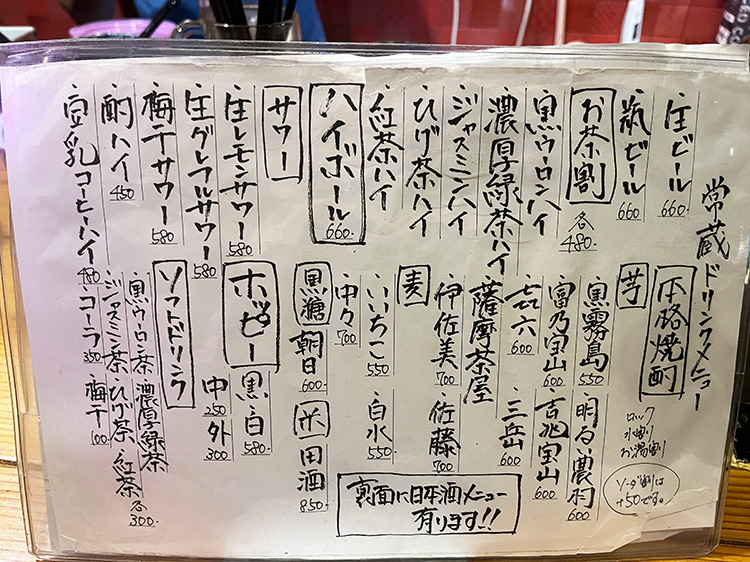 常蔵ドリンクメニュー
・生ビール 660.
・瓶ビール 660
お茶割 各480.
・黒ウーロンハイ
・濃厚緑茶ハイ
・ジャスミンハイ
・ひげ茶ハイ
・紅茶ハイ
ハイボール 660.
サワー
・生レモンサワー 580
・生グレフルサワー 580
・梅干サワー 580
・酎ハイ 450
・豆乳コーヒーハイ 480
本格焼酎
ロック
水割り
お湯割り
ソーダ割りは
+50です。
芋
・黒霧島 550
・明るい農村 600
・富乃宝山 600
・吉兆宝山 600
・㐂六 600
・三岳 600
・薩摩茶屋
・伊佐美 700
・佐藤 700
麦
・いいちこ 550
・白水 550
・中々 700
黒糖
・朝日 600.
米
・田酒 850.
ホッピー
黒・白 580.
中 250
外 300
ソフトドリンク
黒ウーロン茶 濃厚緑茶
ジャスミン茶 ひげ茶 紅茶 各300.
コーラ 350
梅干 100
裏面に日本酒メニュー
有ります!!